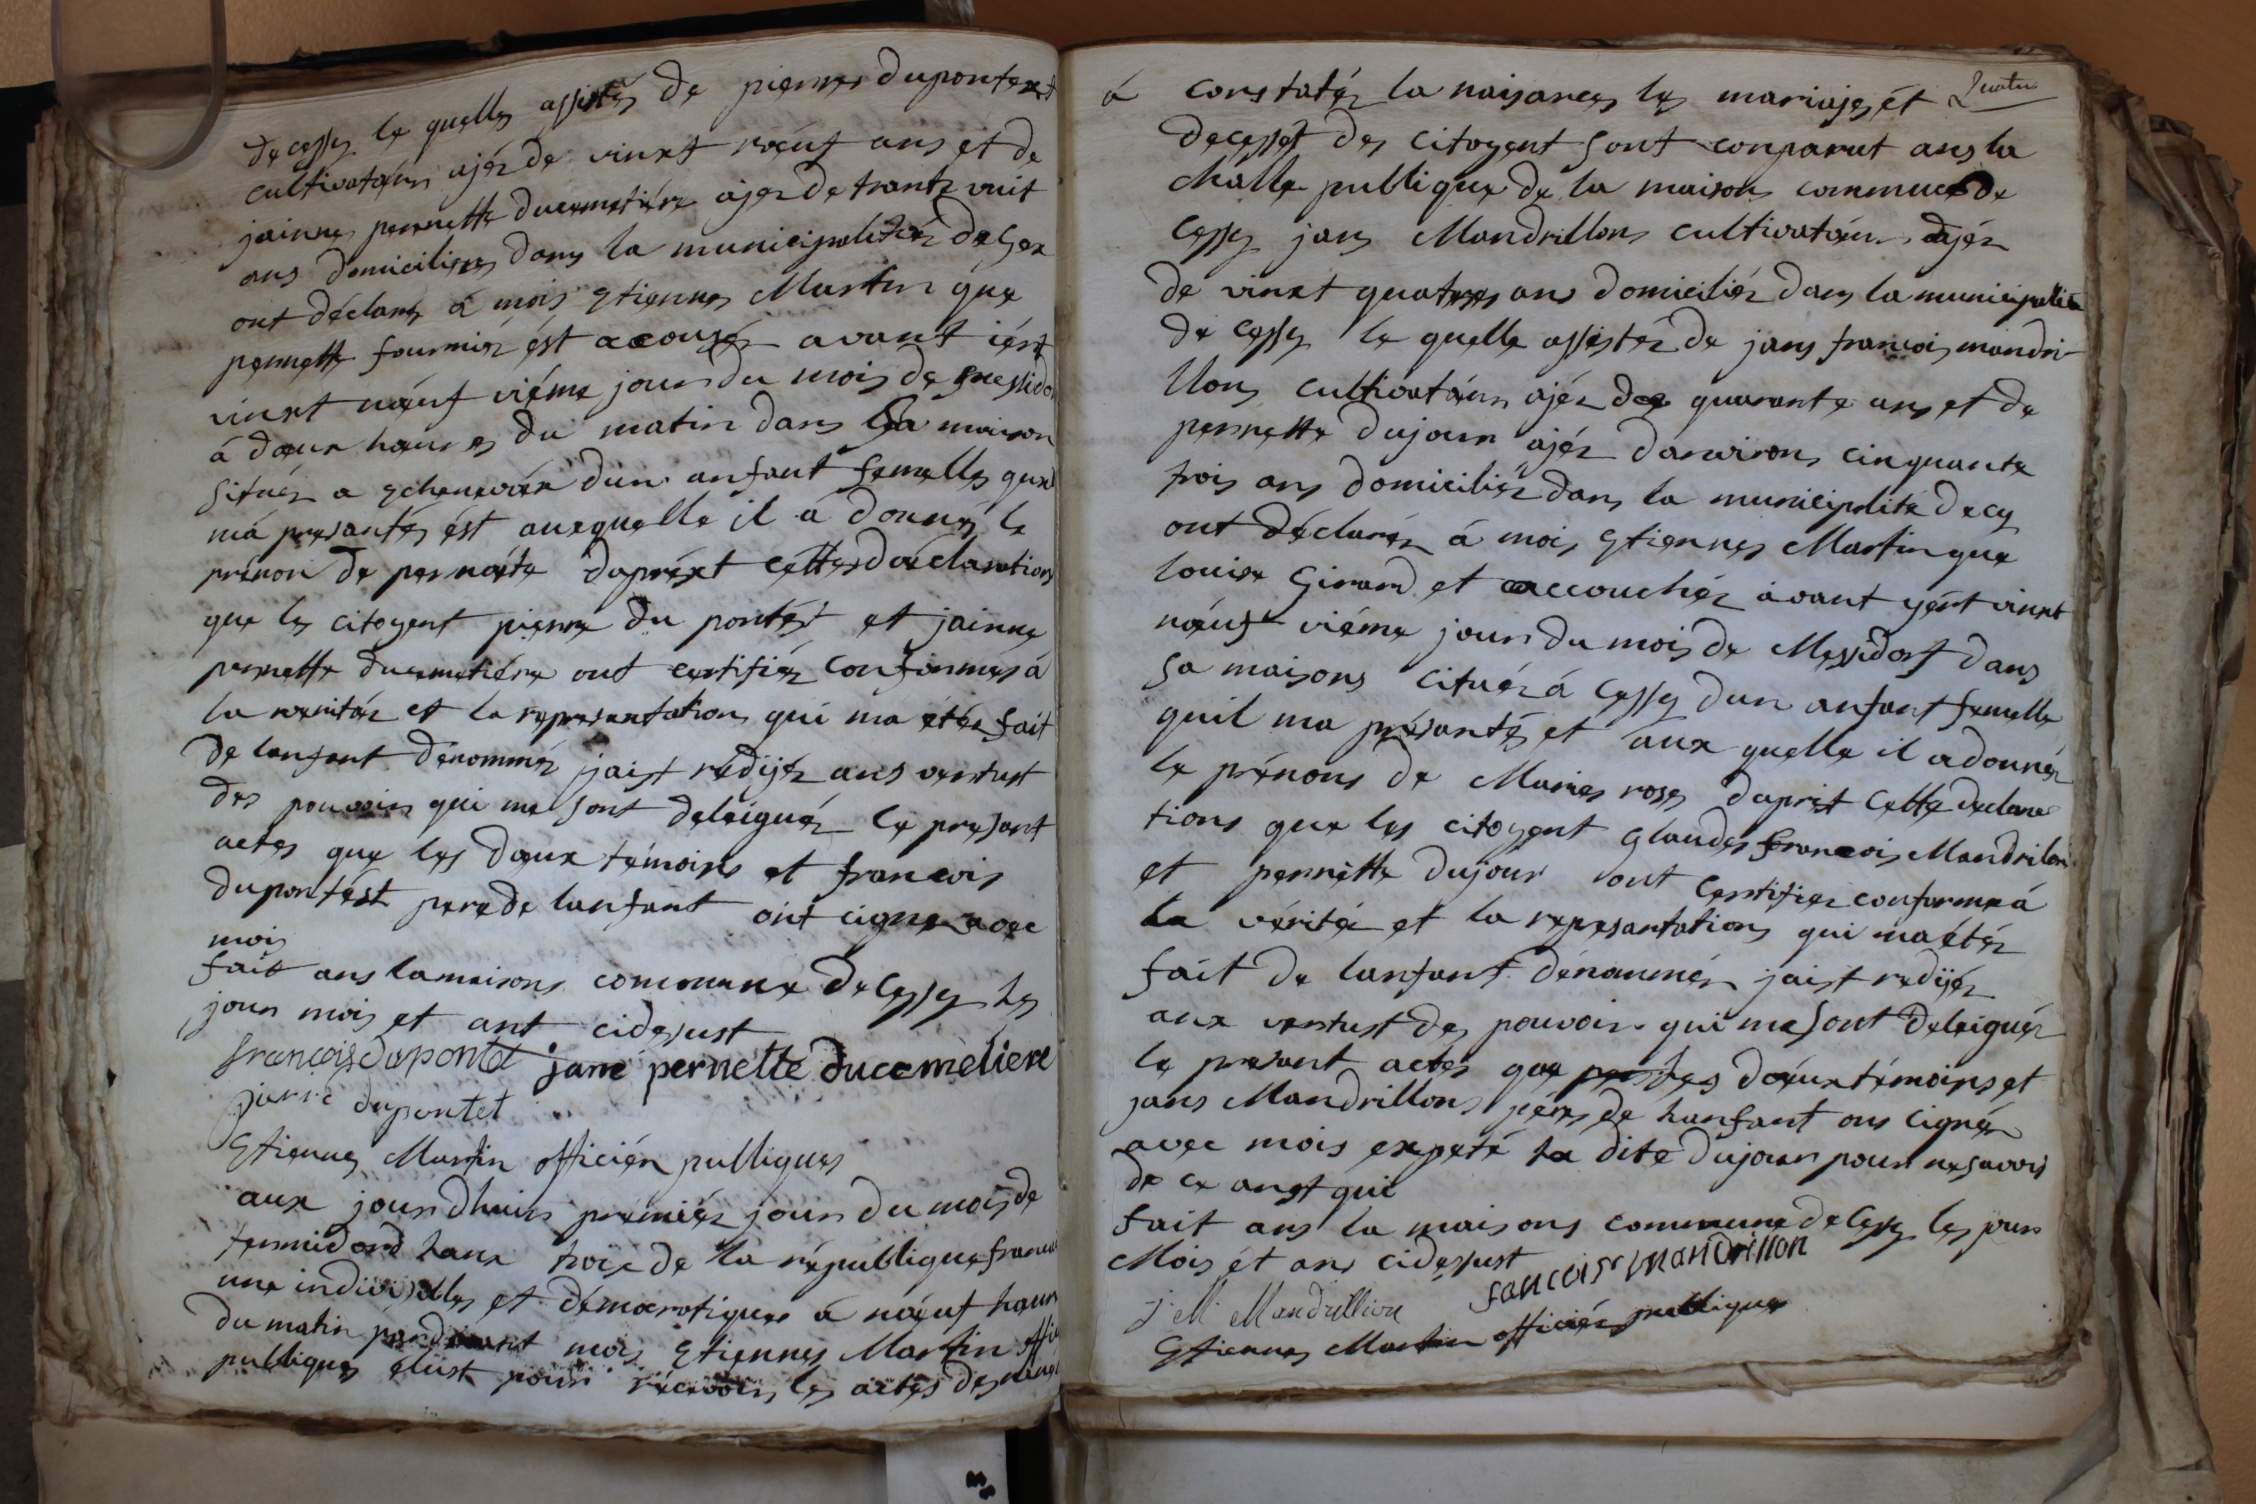 de cessy le quelles assistés de pierres dupontest
cultivatéur ajéz de vinxt nœuf ans et de
jainnes pernette ducemetiére ajez de trante vuit
ans domicilies dans la municipalitéz de Gex
ont déclarez á mois Etiennes Martin que
pernette fourniéz ést acouséz avant iért
vinxt nœuf viéme jour du mois de messidor
á dœux hœures du matin dans sa maison
situéz a echenevéx dun anfant femelles quil
má presantés ést auxquelle il á donnés le
prénon de pernéte daprést cettes déclaration
que les citoyent pierre du pontést et jainne
pernette ducemetiére ont certifiéz confórmes á
la veritéz et la represantations qui ma étéz fait
de lanfant dénomméz jaist rédijéz ans vertust
des pouvoirs qui me sont deleiguéz le presant
actes que les dœux témoins et francois
dupontést pere de lanfant ont cignez avec
mois
fait ans la maisons commune de Cessy les
jour mois et ant cidesust
françois dupontet jane pernette ducemeliere
piarre dupontet
Etiennes Martin officiér publiques
aux jourdhuis premiéz jour du mois de
termidord lanx trois de la république francai
une indivisibles et démocratiques á nœuf hœur
du matin pardevant mois Etiennes Martin offi
publiques élust pour récevoirs les actes de
Quatre
á constatéz la naisances les mariajes ét
decessét des citoyent sont conparut ans la
challe publique de la maisons commune de
Cessy jans Mandrillons cultivatéur ajéz
de vinxt quatres ans domiciliéz dans la municipalité
de cessy le quelle assistéz de jans francois mandri-
llons cultivatéur ajéz de quarante ans et de
pernette dujour ajéz danvirons cinquante
trois ans domiciliéz dans la municipalité de cy
ont déclaréz á mois Etiennes Martin que
louise Girard et accouchéz avant yért vinxt
nœuf viéme jour du mois de Messidort dans
sa maisons cituéz á Cessy dun anfant femelle
quil ma présantés et aux quelle il a donnéz
le prénons de Maries roses daprit cette declara
tions que les citoyent glaudes francois Mandrilon
et pernette dujour ont certifiéz conforme á
la véritéz et la represantations qui ma étéz
fait de lanfant dénomméz jaist redijéz
aux vertust des pouvoir qui me sont deleiguéz
le presant actes que les dœux témoins et
jans Mandrillons péres de lanfant ons cignéz
avec mois expeté la dite dujour pour ne savoir
de ce anst quie
fait ans la maisons commune de Cessy les jour
Mois ét ans cidesust
fancois Mandrillon
Mandrillion
Etiennes Martin officiér publique